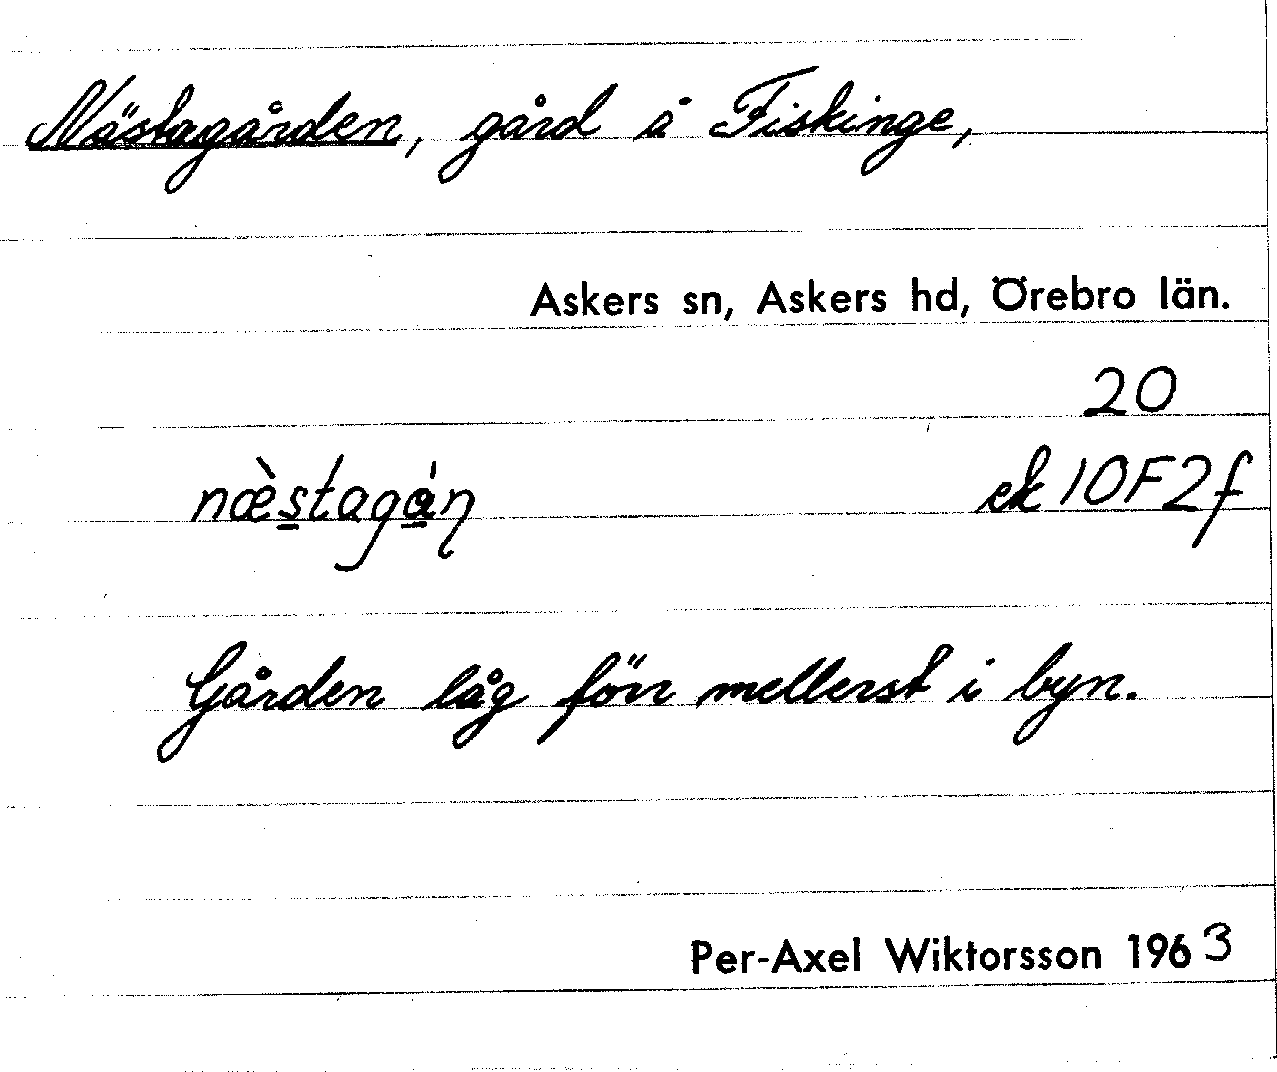 Nästagården, gård å Fiskinge,
Askers sn, Askers hd, Örebro län.
20
næ̀s̲tagá̲ƞ ek 10F2f
Gården låg förr mellerst i byn.
Per-Axel Wiktorsson 1963